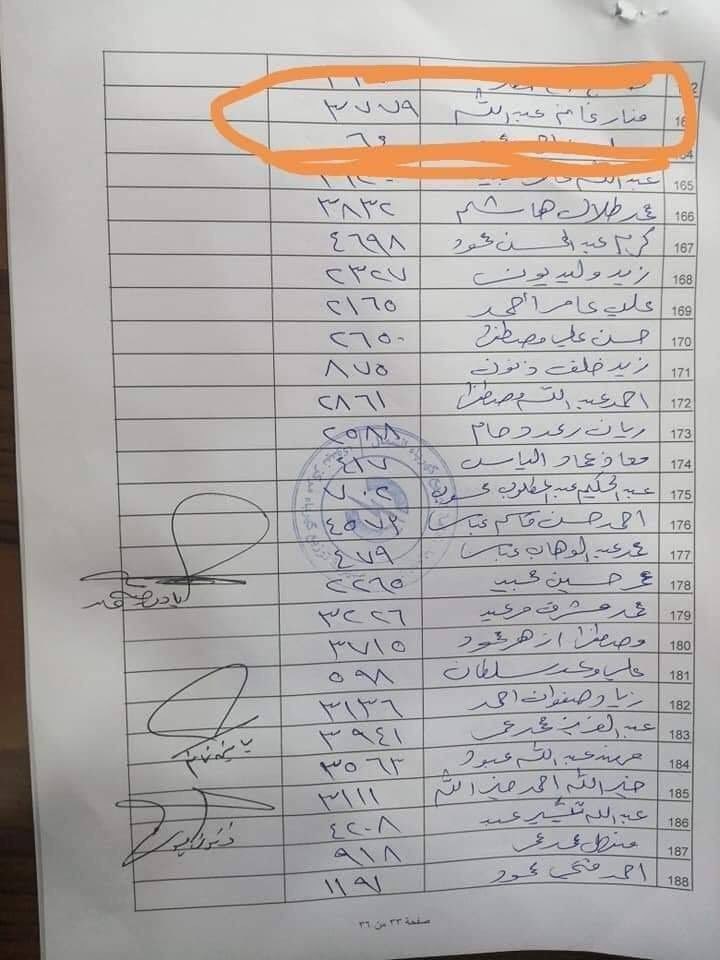 163 منار غانم عبد الله ٣٧٧٩
164 ٦٤
165 عبد الله
166 محمد طلال هاشم ٣٨٣٢
167 كرم عبد المحسن محمود ٤٦٩٨
168 زيد وليد يونس ٢٣٢٧
169 علي عامر احمد ٢١٦٥
170 حسن علي مصطفى ٢٦٥٠
171 زيد خلف ذنون ٨٧٥
172 احمد عبد الله مصطفى ٢٨٦١
173 ريان رعد وحام ٢٥٨٨
174 معاذ عماد الياس ٤١٧
175 عبد الحكيم عبد المطلوب ٧٠٢
176 احمد حسن قاسم عباس ٤٥٧٩
177 محمد عبد الوهاب عباس ٤٧٩
178 حسين ٢٢٦٥
179 محمد مشرف ٣٢٢٦
180 مصطفى ازهر محمود ٣٧١٥
181 علي وعد سلطان ٥٩٨
182 زياد صفوان احمد ٣١٣٦
183 عبد العزيز محمد عمر ٣٩٤١
184 مهند عبد الله عبود ٣٥٦٣
185 خير الله احمد خير الله ٣١١١
186 عبد الله عبد ٤٢٠٨
187 محمد عمر ٩١٨
188 احمد فتحي محمود ١١٩٧
صفحة ٢٣ من ٢٦